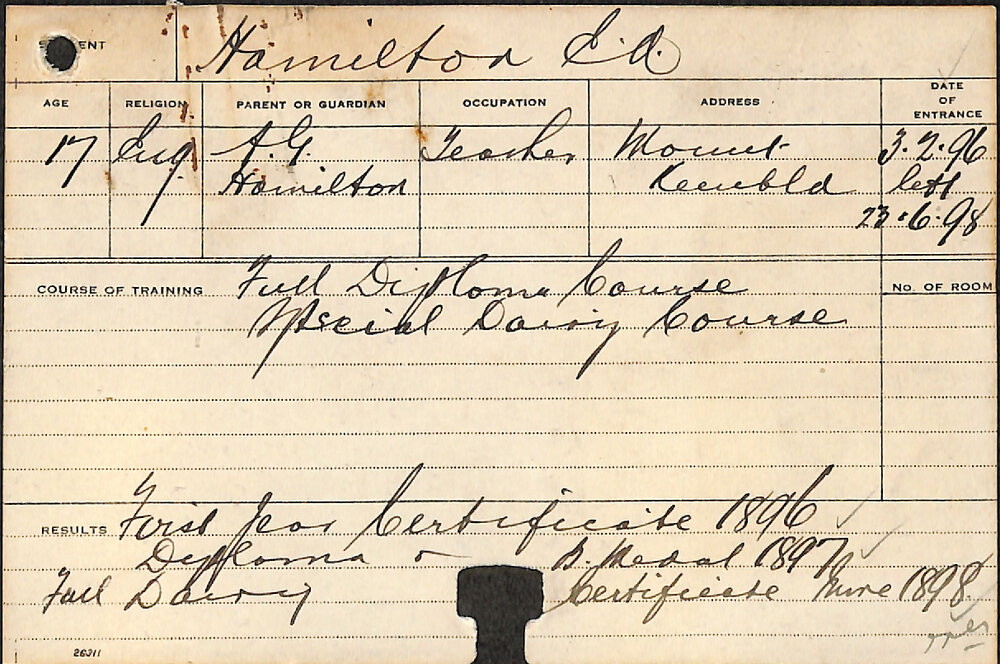 STUDENT Hamilton E.A.
AGE RELIGION PARENT OR GUARDIAN OCCUPATION ADDRESS DATE OF ENTRANCE
17 Eng. A.G. Teacher Mount 3.2.96
Hamilton Keembla left
23.6.98
COURSE OF TRAINING Full Diploma Course No. OF ROOM
Special Dairy Course
RESULTS First Year Certificate 1896 ✓
Diploma & B. Medal 1897 ✓
Full Dairy Certificate June 1898
26311